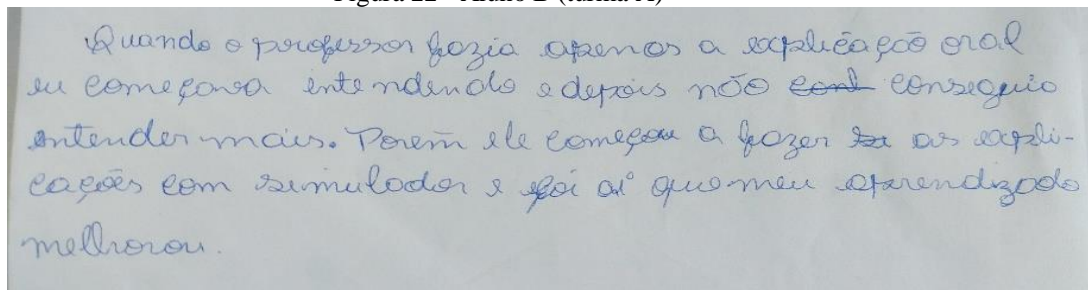 Quando o professor fazia apenas a explicação oral
eu começava entendendo e depois não conseguia
entender mais. Porem ele começou a fazer as expli-
cações com simulador e foi aí que meu aprendizado
melhorou.